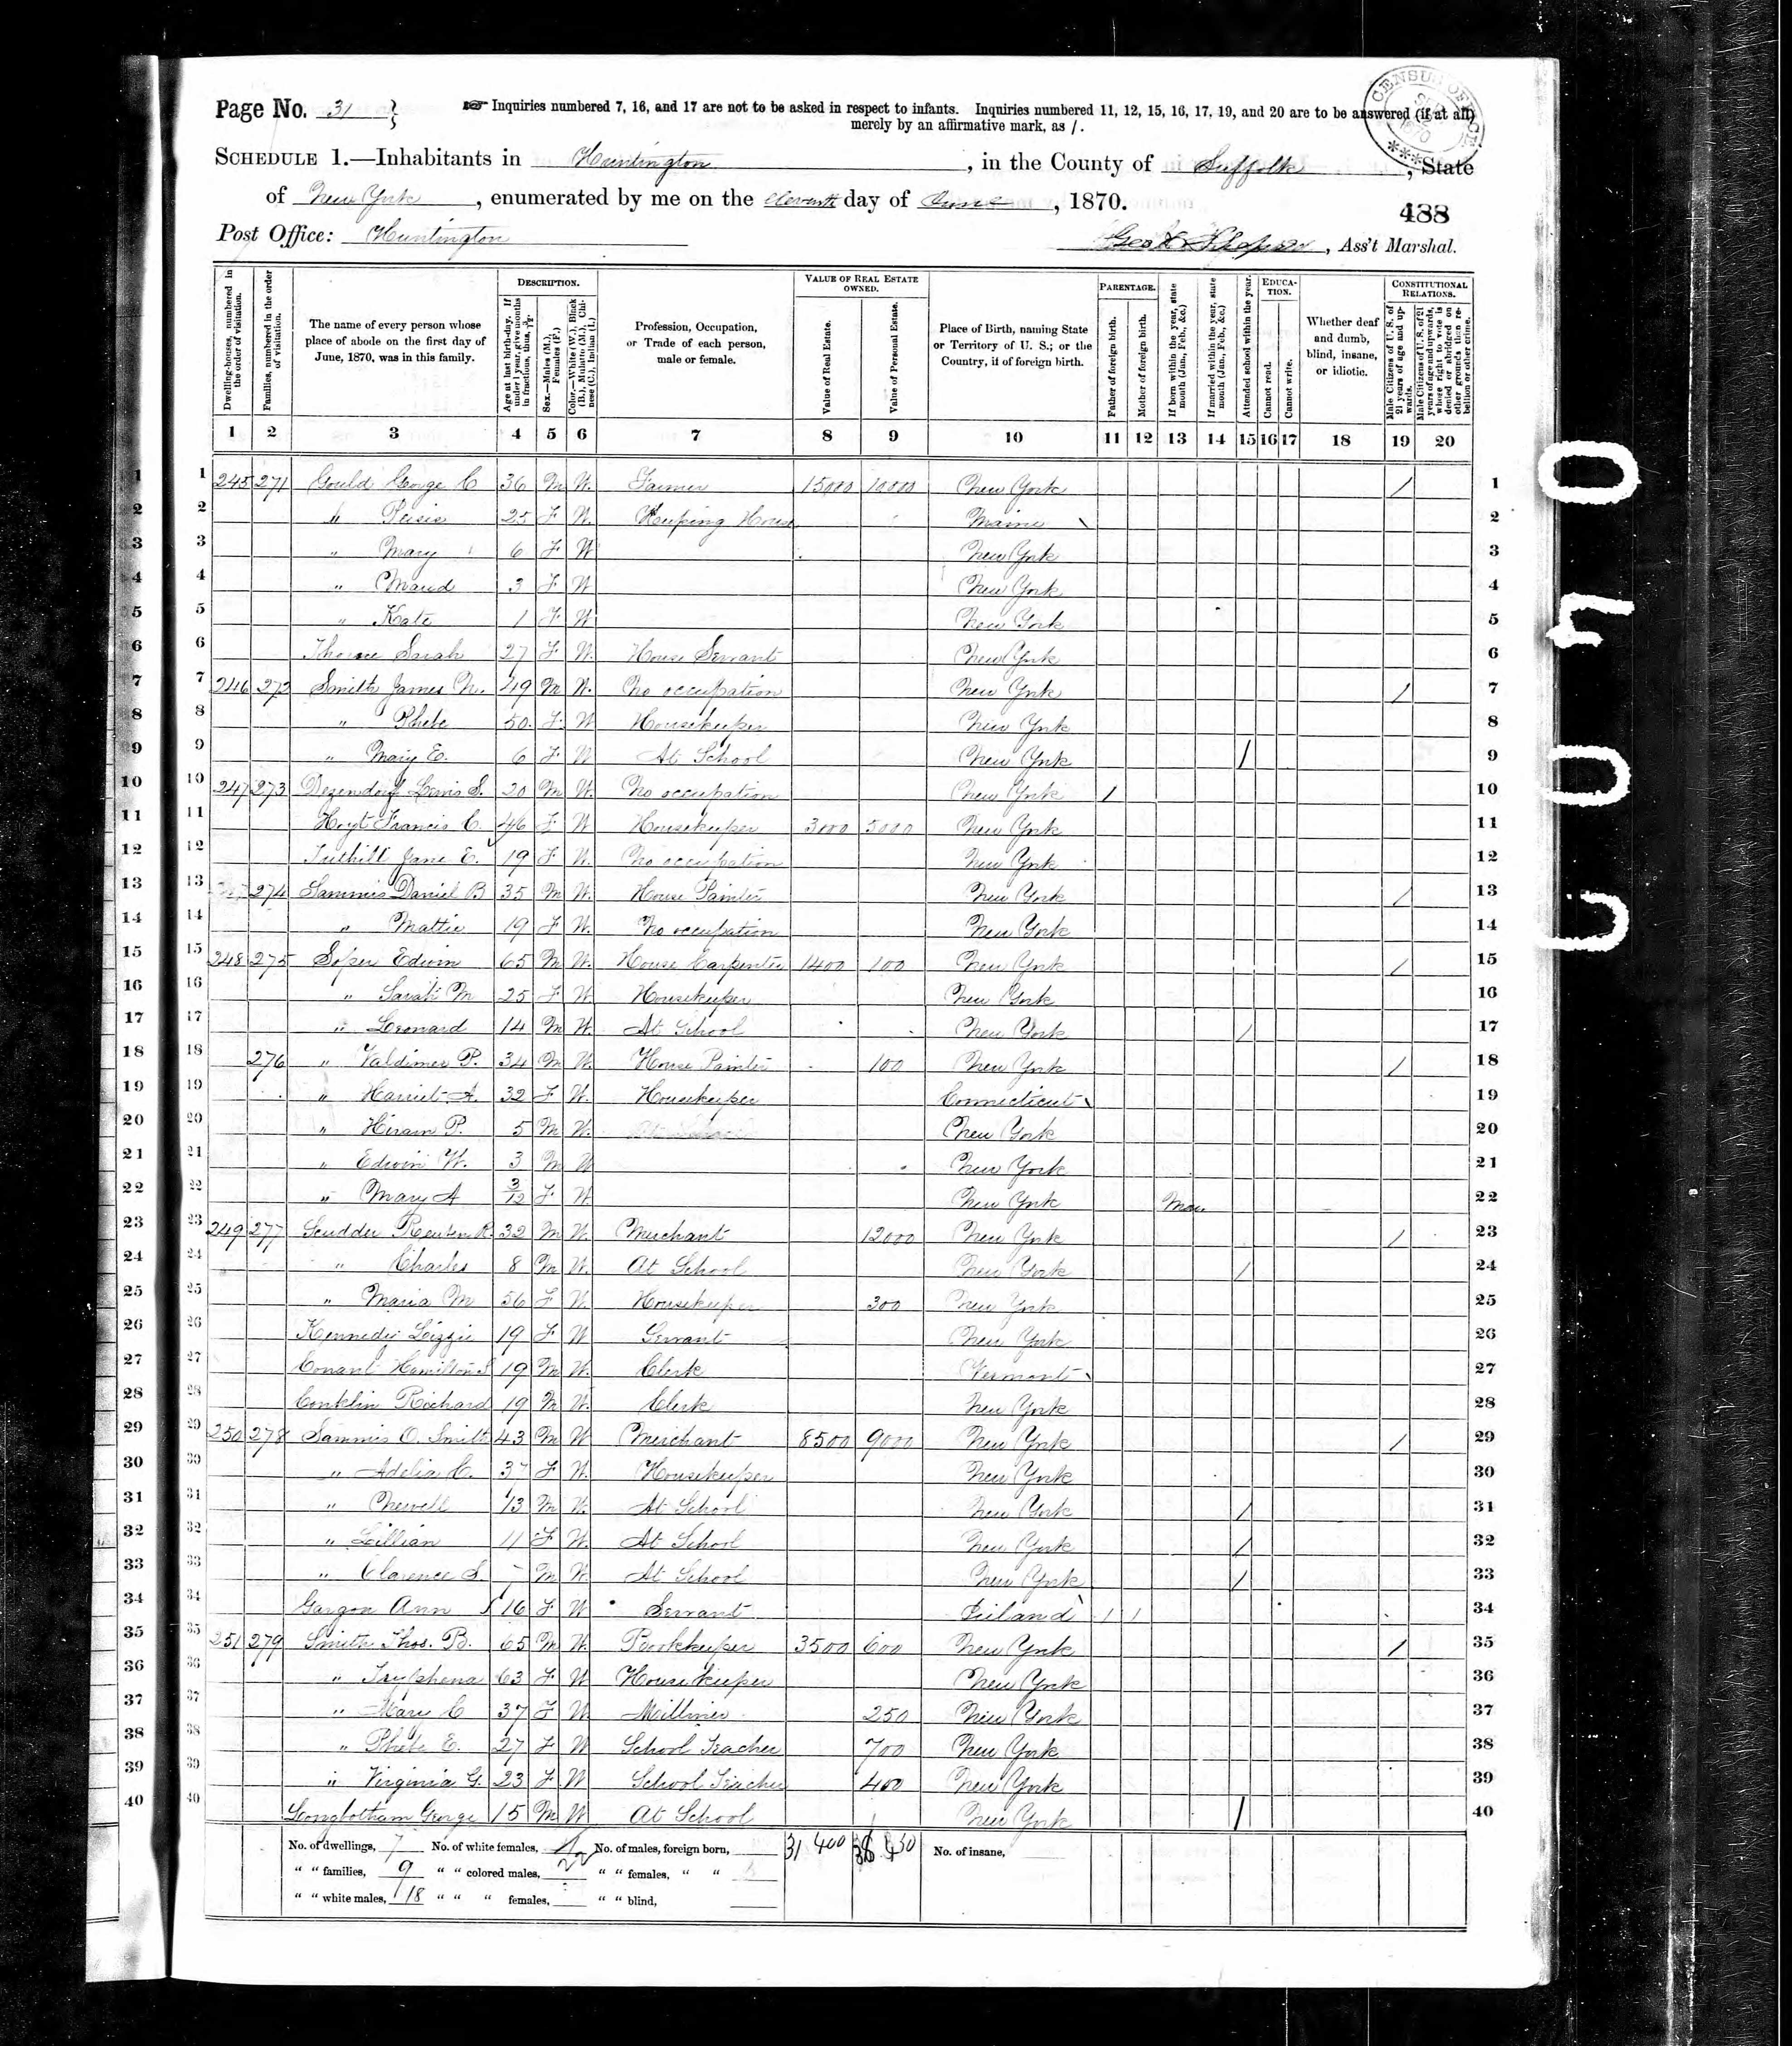 Page No. 31
Inquiries numbered 7, 16, and 17 are not to be asked in respect to infants. Inquiries numbered 11, 12, 15, 16, 17, 19, and 20 are to be answered (if at all)
merely by an affirmative mark, as /.
CENSUS OFFICE
1870
SCHEDULE 1.—Inhabitants in Huntington, in the County of Suffolk, State
of New York, enumerated by me on the eleventh day of June, 1870.
488
Post Office: Huntington
Ass't Marshal.
Dwelling-houses, numbered in the order of visitation.
Families, numbered in the order of visitation.
The name of every person whose place of abode on the first day of June, 1870, was in this family.
DESCRIPTION.
Age at last birth-day. If under 1 year, give months in fractions, thus, 3/12.
Sex.—Males (M.), Females (F.)
Color.—White (W.), Black (B.), Mulatto (M.), Chinese (C.), Indian (I.)
Profession, Occupation, or Trade of each person, male or female.
VALUE OF REAL ESTATE OWNED.
Value of Real Estate.
Value of Personal Estate.
Place of Birth, naming State or Territory of U. S.; or the Country, if of foreign birth.
PARENTAGE.
Father of foreign birth.
Mother of foreign birth.
If born within the year, state month (Jan., Feb., &c.)
If married within the year, state month (Jan., Feb., &c.)
Attended school within the year.
EDUCATION.
Cannot read.
Cannot write.
Whether deaf and dumb, blind, insane, or idiotic.
CONSTITUTIONAL RELATIONS.
Male Citizens of U. S. of 21 years of age and upwards.
Male Citizens of U. S. of 21 years of age and upwards, whose right to vote is denied or abridged on other grounds than rebellion or other crime.
1 2 3 4 5 6 7 8 9 10 11 12 13 14 15 16 17 18 19 20
1 245 271 Gould George C 36 M W. Farmer 15000 10000 New York / 1
2 " 25 F W. Keeping House Maine 2
3 " Mary 6 F W New York 3
4 " Maud 3 F W New York 4
5 " Kate 1 F W New York 5
6 Thorne Sarah 27 F W. House Servant New York 6
7 246 272 Smith James N. 49 M W. No occupation New York / 7
8 " Phebe 50 F W Housekeeper New York 8
9 " Mary E. 6 F W At School New York / 9
10 247 273 Dezendorf Lewis S. 20 M W. No occupation New York / 10
11 Hoyt Francis C. 46 F W Housekeeper 3000 5000 New York 11
12 Tuthill Jane E. 19 F W. No occupation New York 12
13 274 Sammis Daniel B 35 M W. House Painter New York / 13
14 " Mattie 19 F W. No occupation New York 14
15 248 275 Soper Edwin 65 M W. House Carpenter 1400 100 New York / 15
16 " Sarah M 25 F W. Housekeeper New York 16
17 " Leonard 14 M W. At School New York / 17
18 276 " Valdimer P. 34 M W. House Painter 100 New York / 18
19 " Harriet A. 32 F W. Housekeeper Connecticut 19
20 " Hiram P. 5 M W. New York 20
21 " Edwin W. 3 M W New York 21
22 " Mary A 3/12 F W New York Mar 22
23 249 277 Scudder Reuben R. 32 M W. Merchant 12000 New York / 23
24 " Charles 8 M W. At School New York / 24
25 " Maria M 56 F W. Housekeeper 300 New York 25
26 Kennedy Lizzie 19 F W Servant New York 26
27 Conant Hamilton S 19 M W. Clerk Vermont 27
28 Conklin Richard 19 M W. Clerk New York 28
29 250 278 Sammis O. Smith 43 M W Merchant 8500 9000 New York / 29
30 " Adelia C. 37 F W. Housekeeper New York 30
31 " Newell 13 M W. At School New York / 31
32 " Lillian 11 F W. At School New York / 32
33 " Clarence S. 7 M W. At School New York / 33
34 Ann 16 F W Servant Ireland / / 34
35 251 279 Smith Thos. B. 65 M W. Bookkeeper 3500 600 New York / 35
36 " Tryphena 63 F W Housekeeper New York 36
37 " Mary C 37 F W Milliner 250 New York 37
38 " Phebe E. 27 F W School Teacher 700 New York 38
39 " Virginia G. 23 F W School Teacher 400 New York 39
40 Longbotham George 15 M W At School New York / 40
No. of dwellings, 7 No. of white females, No. of males, foreign born, 31400 No. of insane,
" " families, 9 " " colored males, " " females, " "
" " white males, 18 " " " females, " " blind,